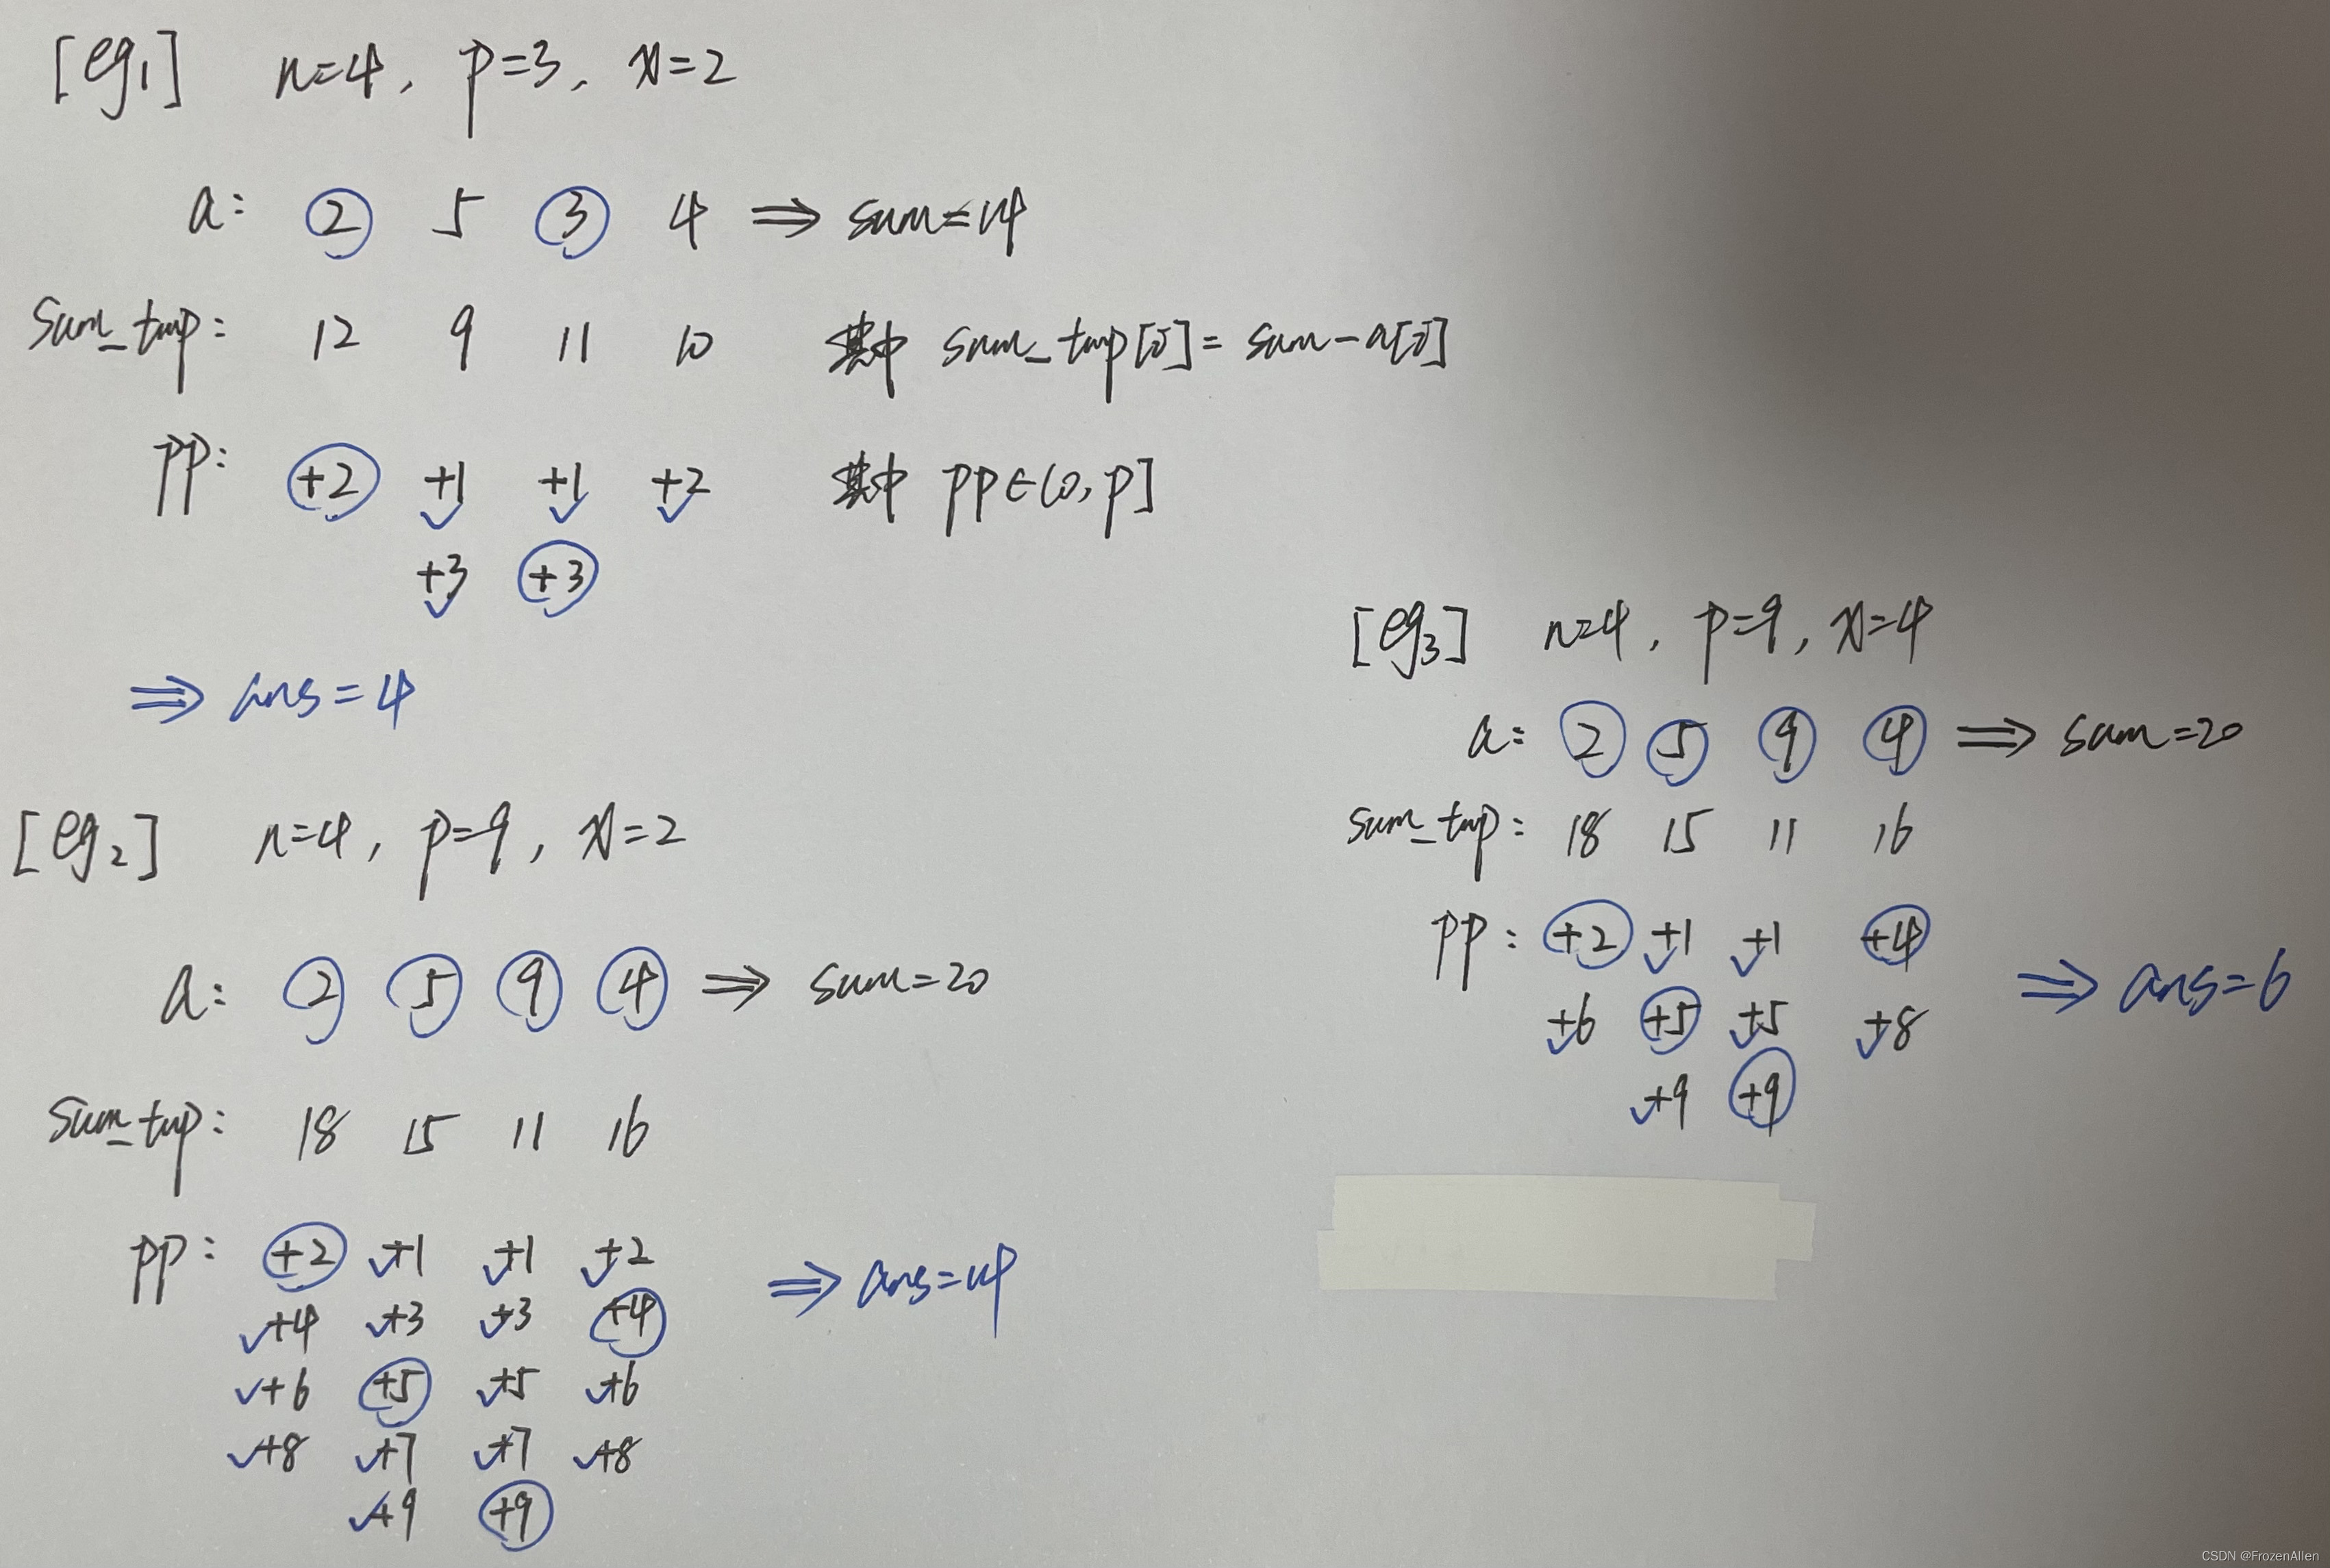 [eg1] n=4, p=3, x=2
a: 2 5 3 4 ⇒ sum=14
sum_tmp: 12 9 11 10 其中 sum_tmp[j]=sum-a[j]
pp: +2 +1 +1 +2 其中 pp∈(0,p]
+3 +3
⇒ ans=4
[eg2] n=4, p=9, x=2
a: 2 5 9 4 ⇒ sum=20
sum_tmp: 18 15 11 16
pp: +2 +1 +1 +2
+4 +3 +3 +4
⇒ ans=14
+6 +5 +5 +6
+8 +7 +7 +8
+9 +9
[eg3] n=4, p=9, x=4
a: 2 5 9 4 ⇒ sum=20
sum_tmp: 18 15 11 16
pp: +2 +1 +1 +4
⇒ ans=6
+6 +5 +5 +8
+9 +9
CSDN @FrozenAllen